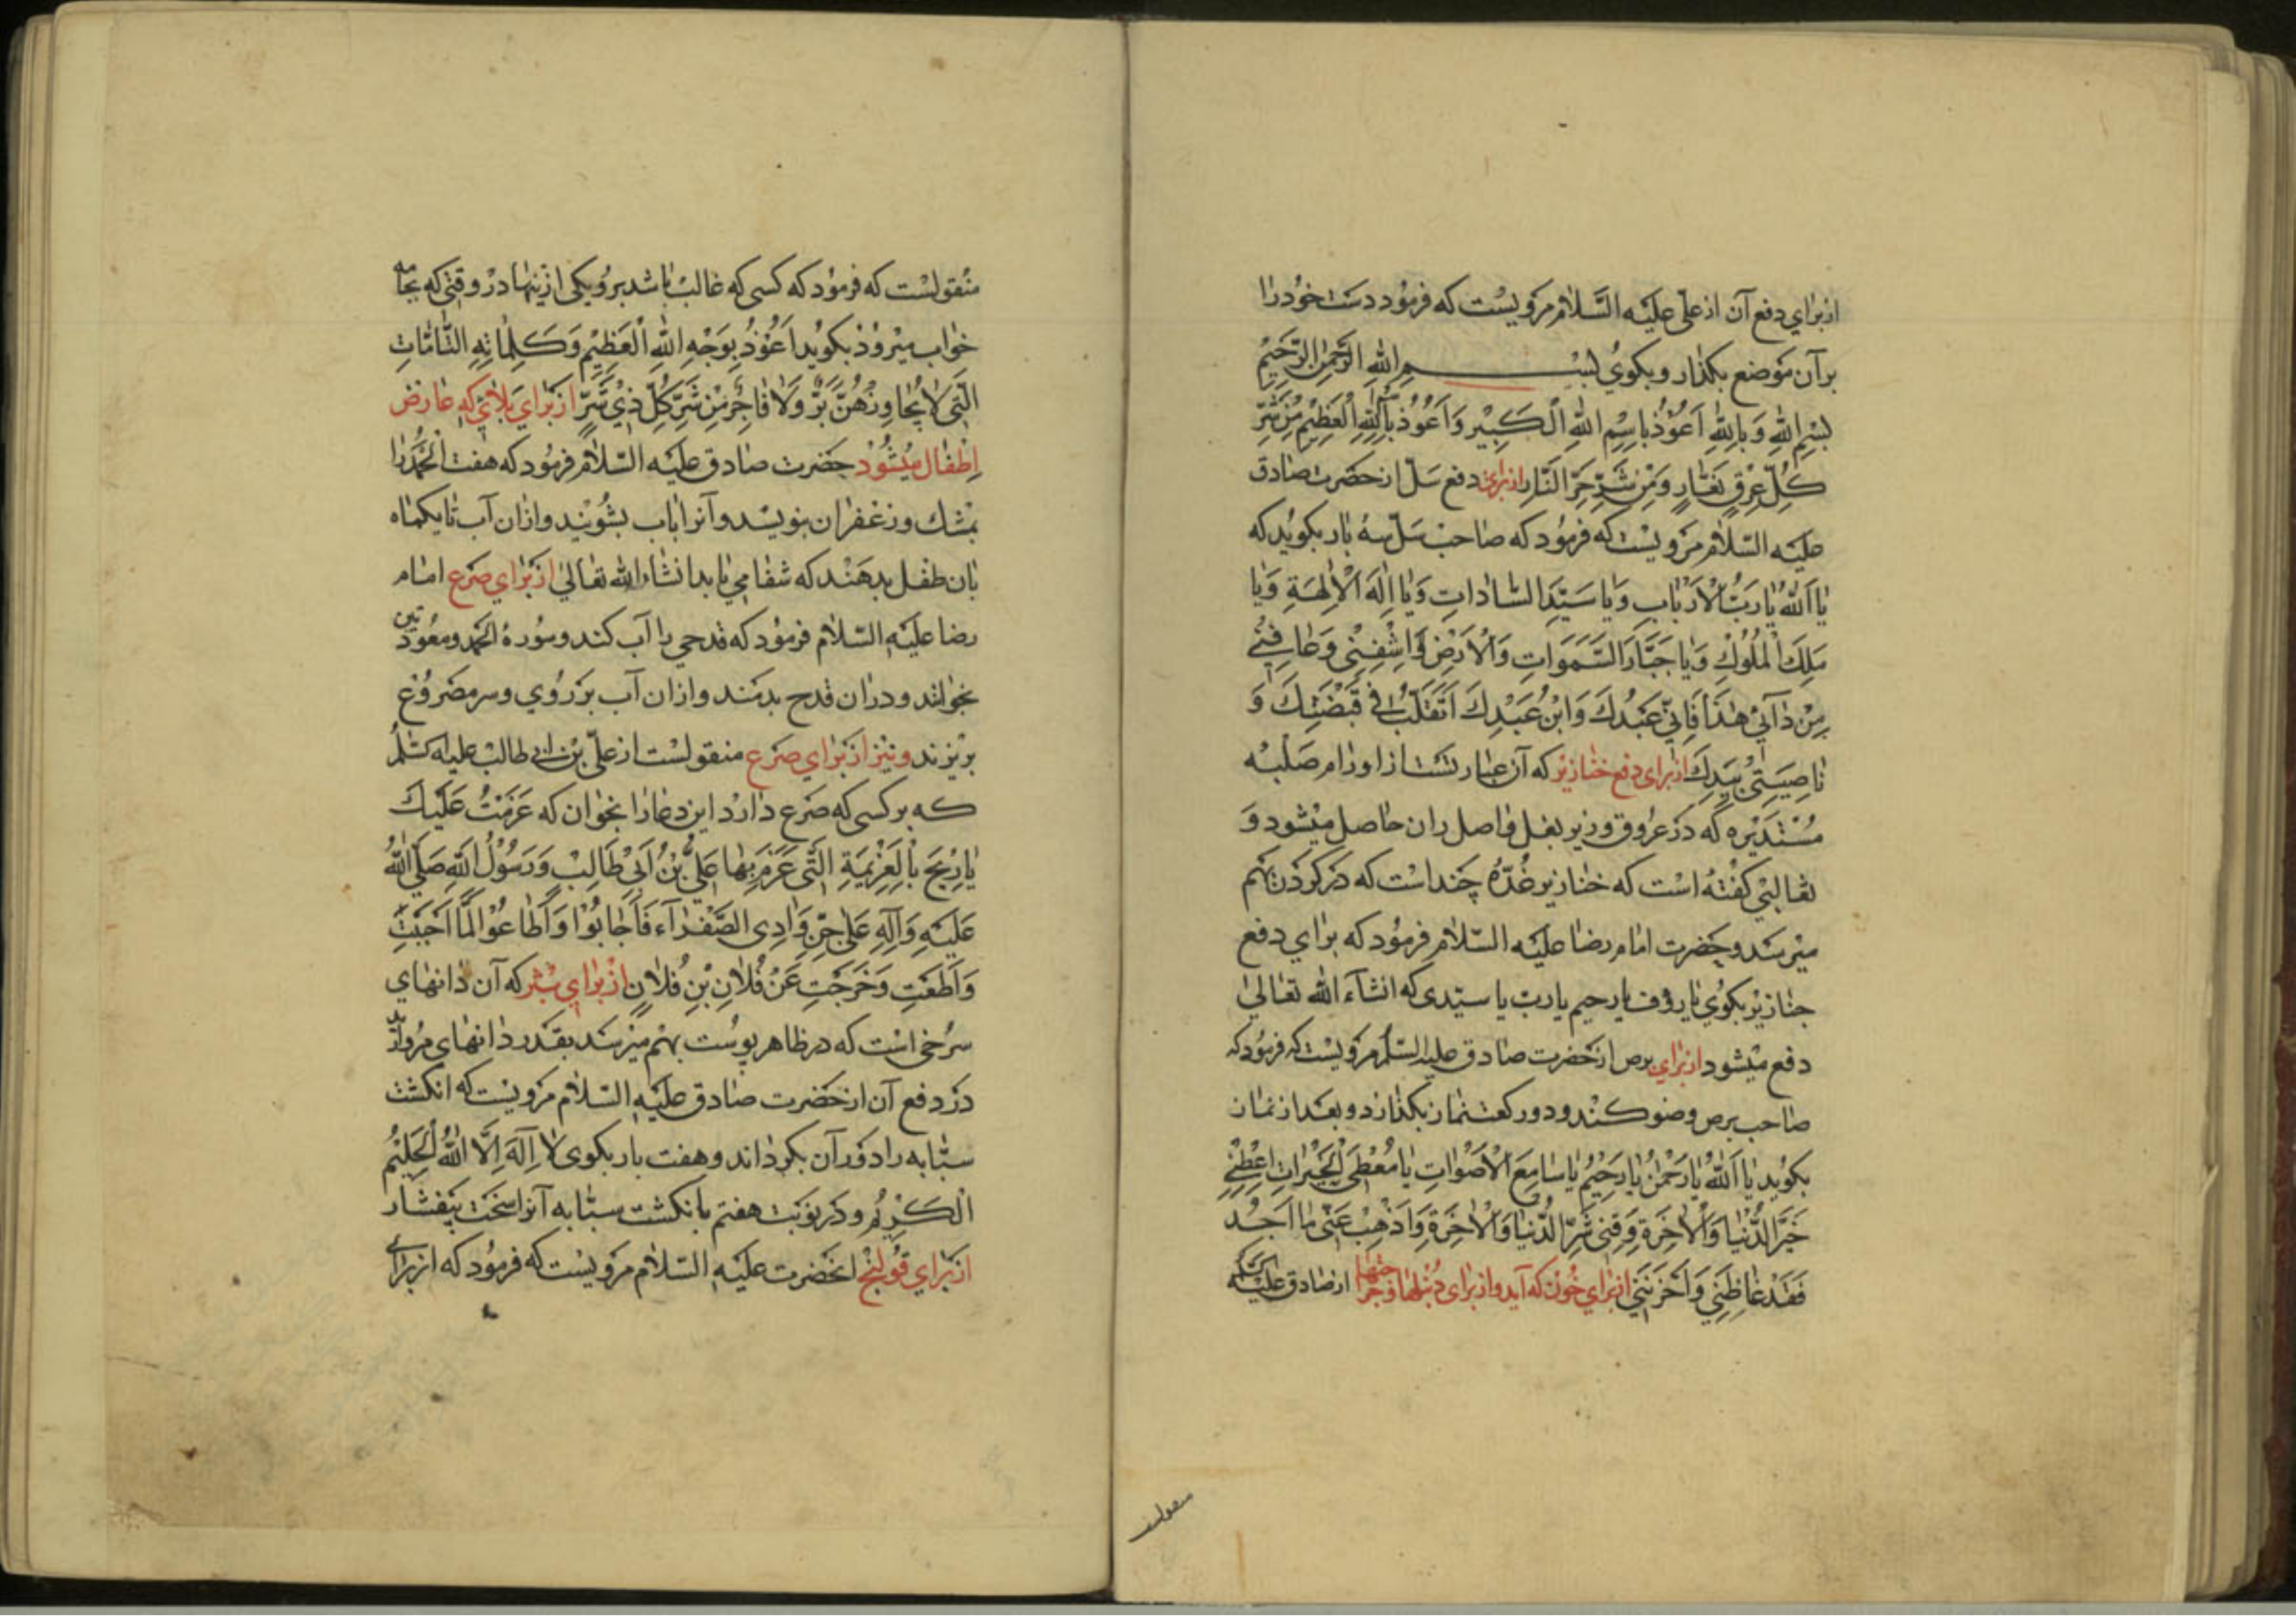 از برای دفع آن از علی علیه السلام مرویست که فرمود دست خود را
بر آن موضع بکذار و بکوی بسم الله الرحمن الرحیم
بِسْمِ اللهِ وَبِاللهِ اَعُوذُ بِاسْمِ اللهِ الْكَبِيْرِ وَاَعُوذُ بِاللهِ الْعَظِيْمِ مِنْ شَرِّ
كُلِّ عِرْقٍ نَعَّارٍ وَمِنْ شَرِّ حَرِّ النَّارِ از برای دفع سل از حضرت صادق
علیه السلام مرویست که فرمود که صاحب سل سه بار بکوید که
يا اَللهُ يا رَبَّ الْاَرْبابِ وَيا سَيِّدَ السّاداتِ وَيا اِلٰهَ الْاٰلِهَةِ وَيا
مَلِكَ الْمُلُوْكِ وَيا جَبَّارَ السَّمَوَاتِ وَالْاَرْضِ وَاشْفِنِيْ وَعَافِنِيْ
مِنْ دَآئِيْ هٰذَا فَاِنِّيْ عَبْدُكَ وَابْنُ عَبْدِكَ اَتَقَلَّبُ فِيْ قَبْضَتِكَ وَ
نَاصِيَتِيْ بِيَدِكَ از برای دفع خنازیر که آن عبارتست از اورام صلبه
مستدیره که در عروق و زیر بغل و اصل ران حاصل میشود و
ثعالبی کفته است که خنازیر غده چند است که در کردن بهم
میرسد و حضرت امام رضا علیه السلام فرمود که برای دفع
خنازیر بکوی یا رؤف یا رحیم یا رب یا سیدی که انشاء الله تعالی
دفع میشود از برای برص از حضرت صادق علیه السلم مرویست که فرمود که
صاحب برص وضو کند و دو رکعت نماز بکذارد و بعد از نماز
بکوید يا اَللهُ يا رَحْمٰنُ يا رَحِيْمُ يا سَامِعَ الْاَصْوَاتِ يا مُعْطِيَ الْخَيْرَاتِ اَعْطِنِيْ
خَيْرَ الدُّنْيَا وَالْاٰخِرَةِ وَقِنِيْ شَرَّ الدُّنْيَا وَالْاٰخِرَةِ وَاَذْهِبْ عَنِّيْ مَا اَجِدُ
فَقَدْ غَاظَنِيْ وَاَحْزَنَنِيْ از برای خون که آید و از برای دنبلها و جراحتها از صادق علیه السلم
منقولست
منقولست که فرمود که کسی که غالب باشد بر و یکی ازینها در وقتی که بجامه
خواب میرود بکوید اَعُوْذُ بِوَجْهِ اللهِ الْعَظِيْمِ وَكَلِمَاتِهِ التَّامَّاتِ
الَّتِيْ لَا يُجَاوِزُهُنَّ بَرٌّ وَلَا فَاجِرٌ مِنْ شَرِّ كُلِّ ذِيْ شَرٍّ از برای بلائی که عارض
اطفال میشود حضرت صادق علیه السلام فرمود که هفت الحمد را
بمشک و زعفران بنویسد و آنرا بآب بشویند و ازان آب تا یکماه
بان طفل بدهند که شفا می یابد انشاء الله تعالی از برای صرع امام
رضا علیه السلام فرمود که قدحی را آب کند و سوره الحمد و معوذتین
بخواند و دران قدح بدمند و ازان آب بر روی و سر مصروع
بریزند و نیز از برای صرع منقولست از علی بن ابی طالب علیه السلم
که بر کسی که صرع دارد این دعا را بخوان که عَزَمْتُ عَلَيْكَ
يا رِيْحُ بِالْعَزِيْمَةِ الَّتِيْ عَزَمَ بِهَا عَلِيُّ بْنُ اَبِيْ طَالِبٍ وَرَسُوْلُ اللهِ صَلَّى اللهُ
عَلَيْهِ وَآلِهِ عَلٰى جِنِّ وَادِي الصَّفْرَآءِ فَاَجَابُوْا وَاَطَاعُوْا لَمَّا اَجَبْتِ
وَاَطَعْتِ وَخَرَجْتِ عَنْ فُلَانِ بْنِ فُلَانٍ از برای بثر که آن دانهای
سرخی است که در ظاهر پوست بهم میرسد بقدر دانهای مروارید
در دفع آن از حضرت صادق علیه السلام مرویست که انکشت
سبابه را دور آن بکرداند و هفت بار بکوی لَا اِلٰهَ اِلَّا اللهُ الْحَلِيْمُ
الْكَرِيْمُ و در نوبت هفتم بانکشت سبابه آنرا سخت بیفشار
از برای قولنج انحضرت علیه السلام مرویست که فرمود که از برای